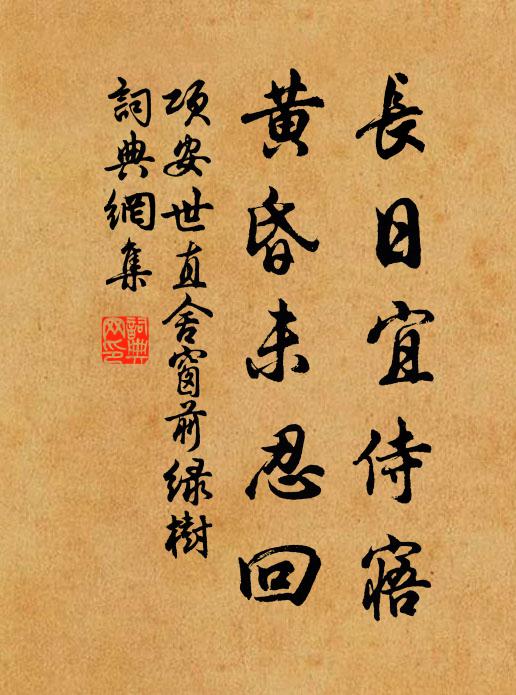 長日宜侍寤
黃昏未忍回
項安世直舍窗前緑樹
詞典網集
詞典網印